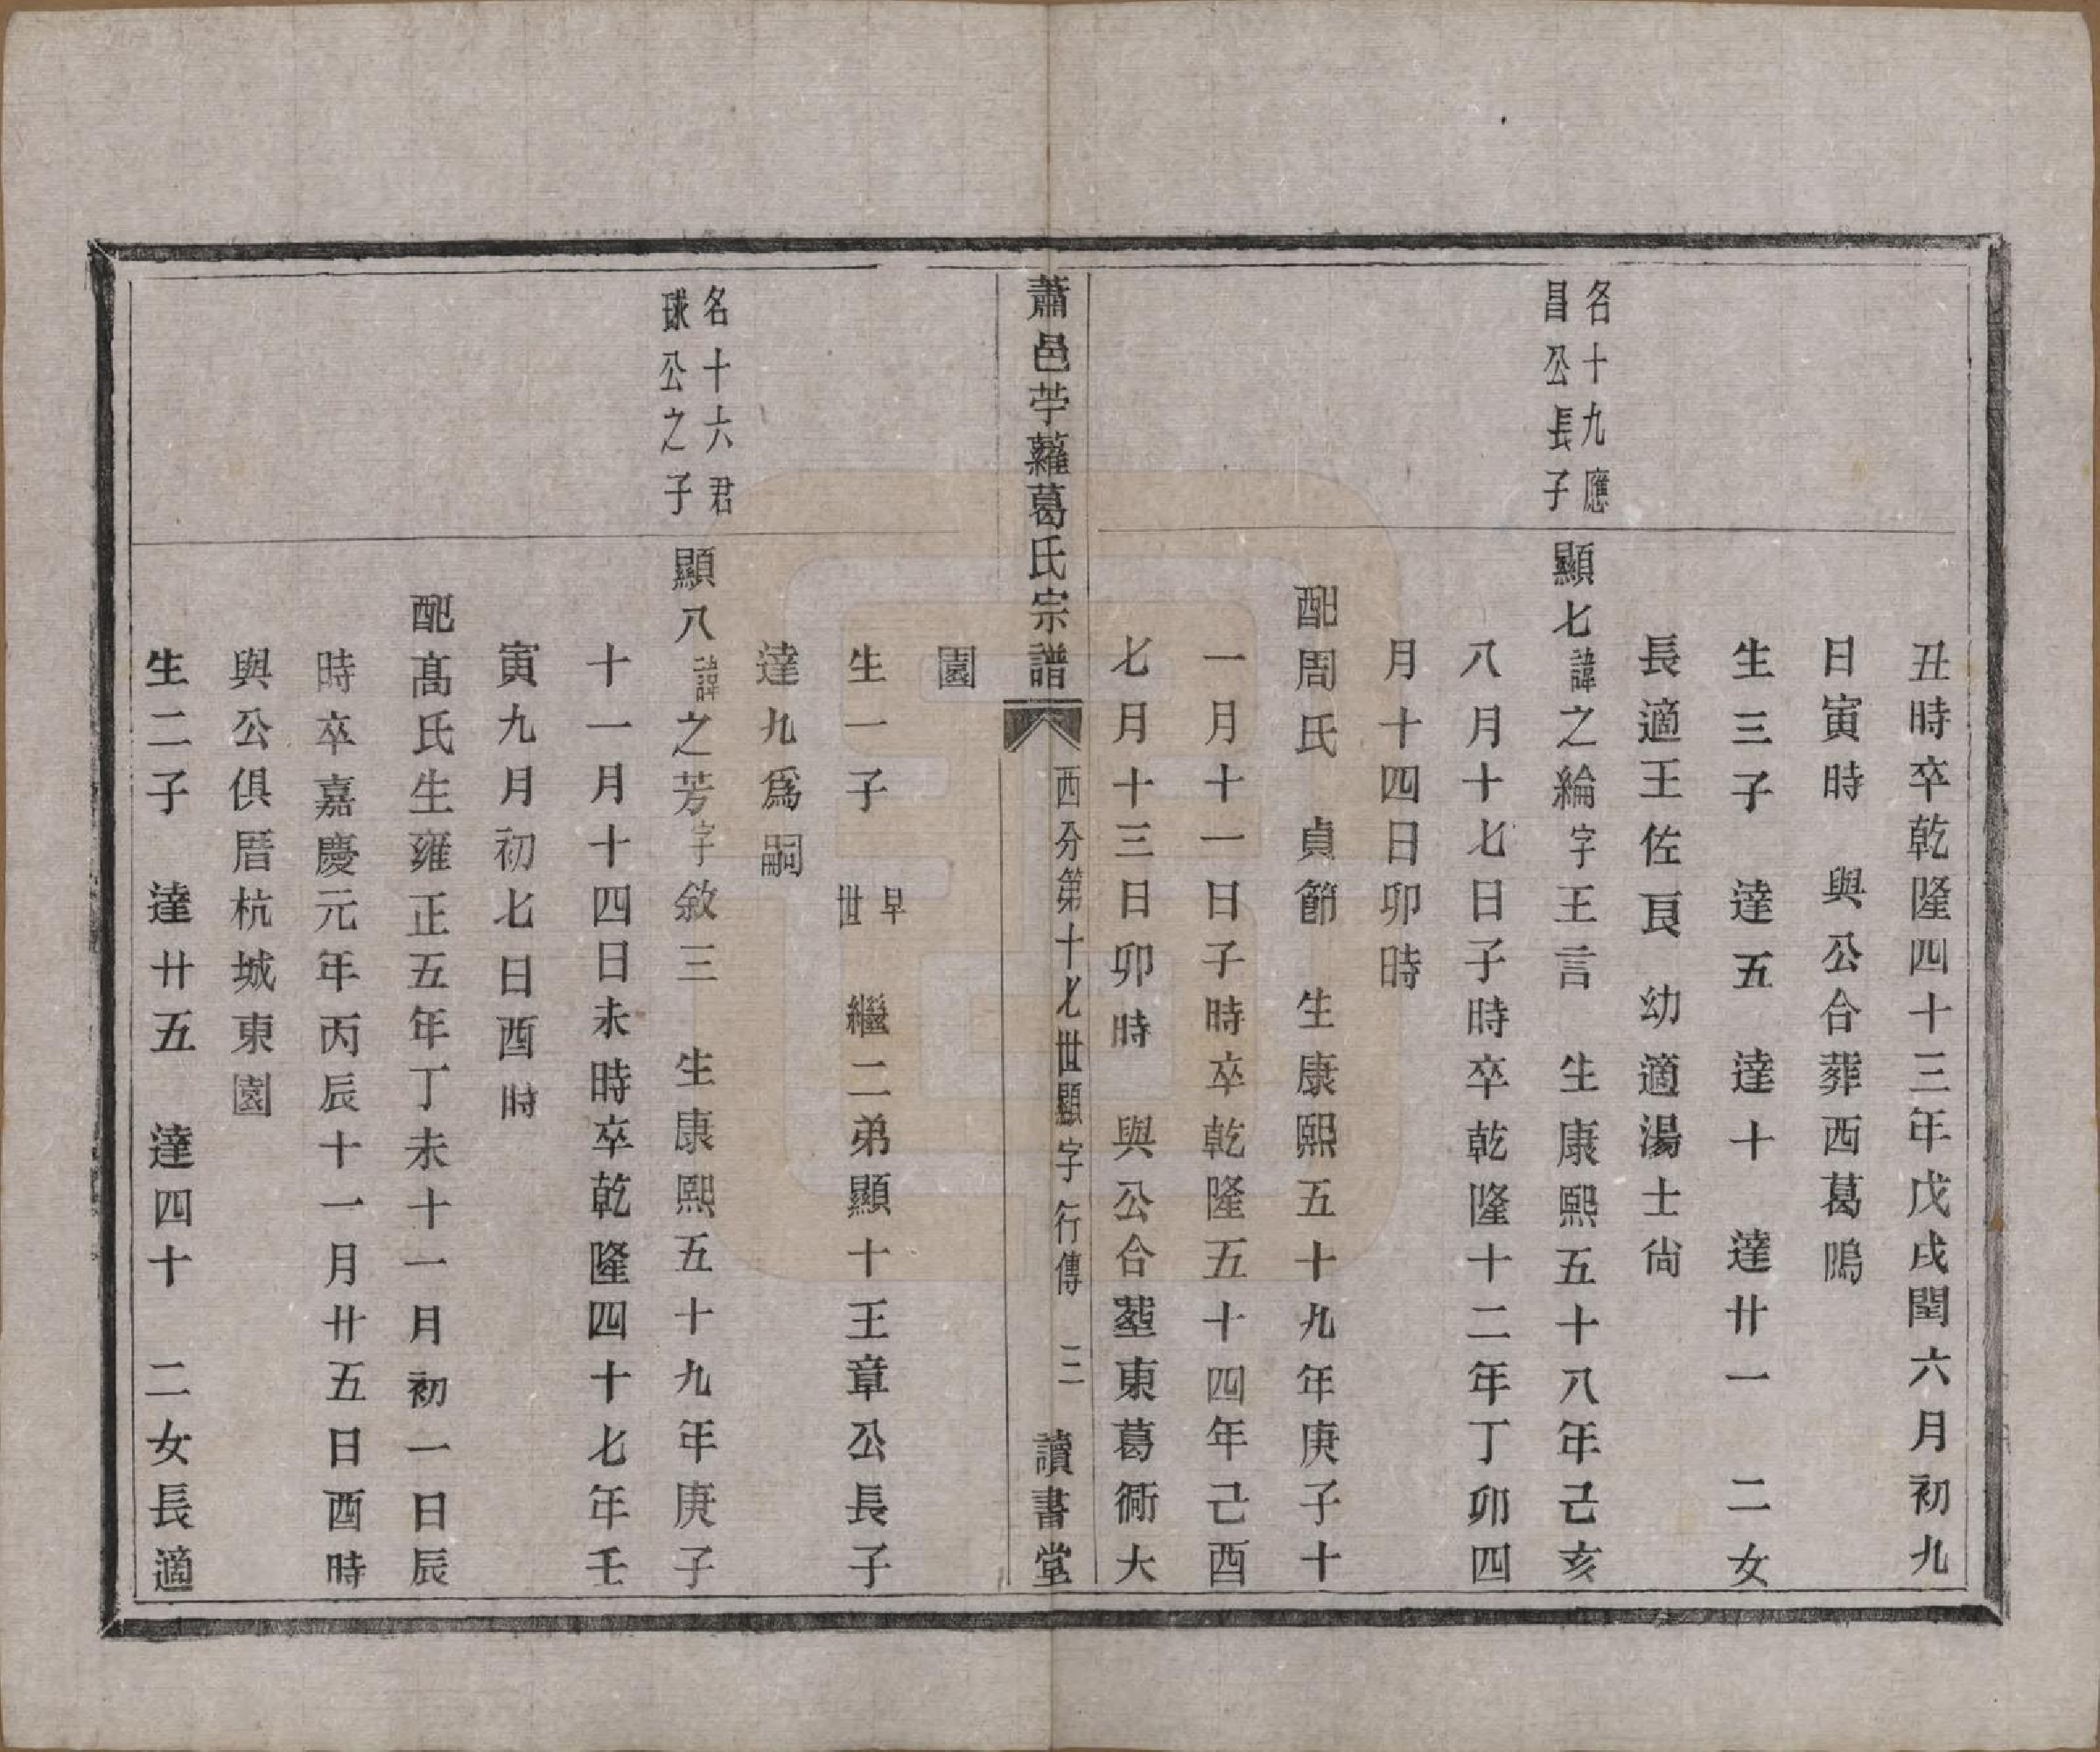 丑時卒乾隆四十三年戊戌閏六月初九
日寅時　與公合葬西葛隖
生三子　達五　達十　達廿一　二女
長適王佐良　幼適湯士尙
名十九應
昌公長子
顯七諱之綸字王言　生康熙五十八年己亥
八月十七日子時卒乾隆十二年丁卯四
月十四日卯時
配周氏　貞節　生康熙五十九年庚子十
一月十一日子時卒乾隆五十四年己酉
七月十三日卯時　與公合塟東葛衕大
蕭邑苧蘿葛氏宗譜
西分第十七世顯字行傳　三
讀書堂
園
生一子　早世　繼二弟顯十王章公長子
達九爲嗣
名十六君
球公之子
顯八諱之芳字敘三　生康熙五十九年庚子
十一月十四日未時卒乾隆四十七年壬
寅九月初七日酉時
配高氏生雍正五年丁未十一月初一日辰
時卒嘉慶元年丙辰十一月廿五日酉時
與公俱厝杭城東園
生二子　達廿五　達四十　二女長適